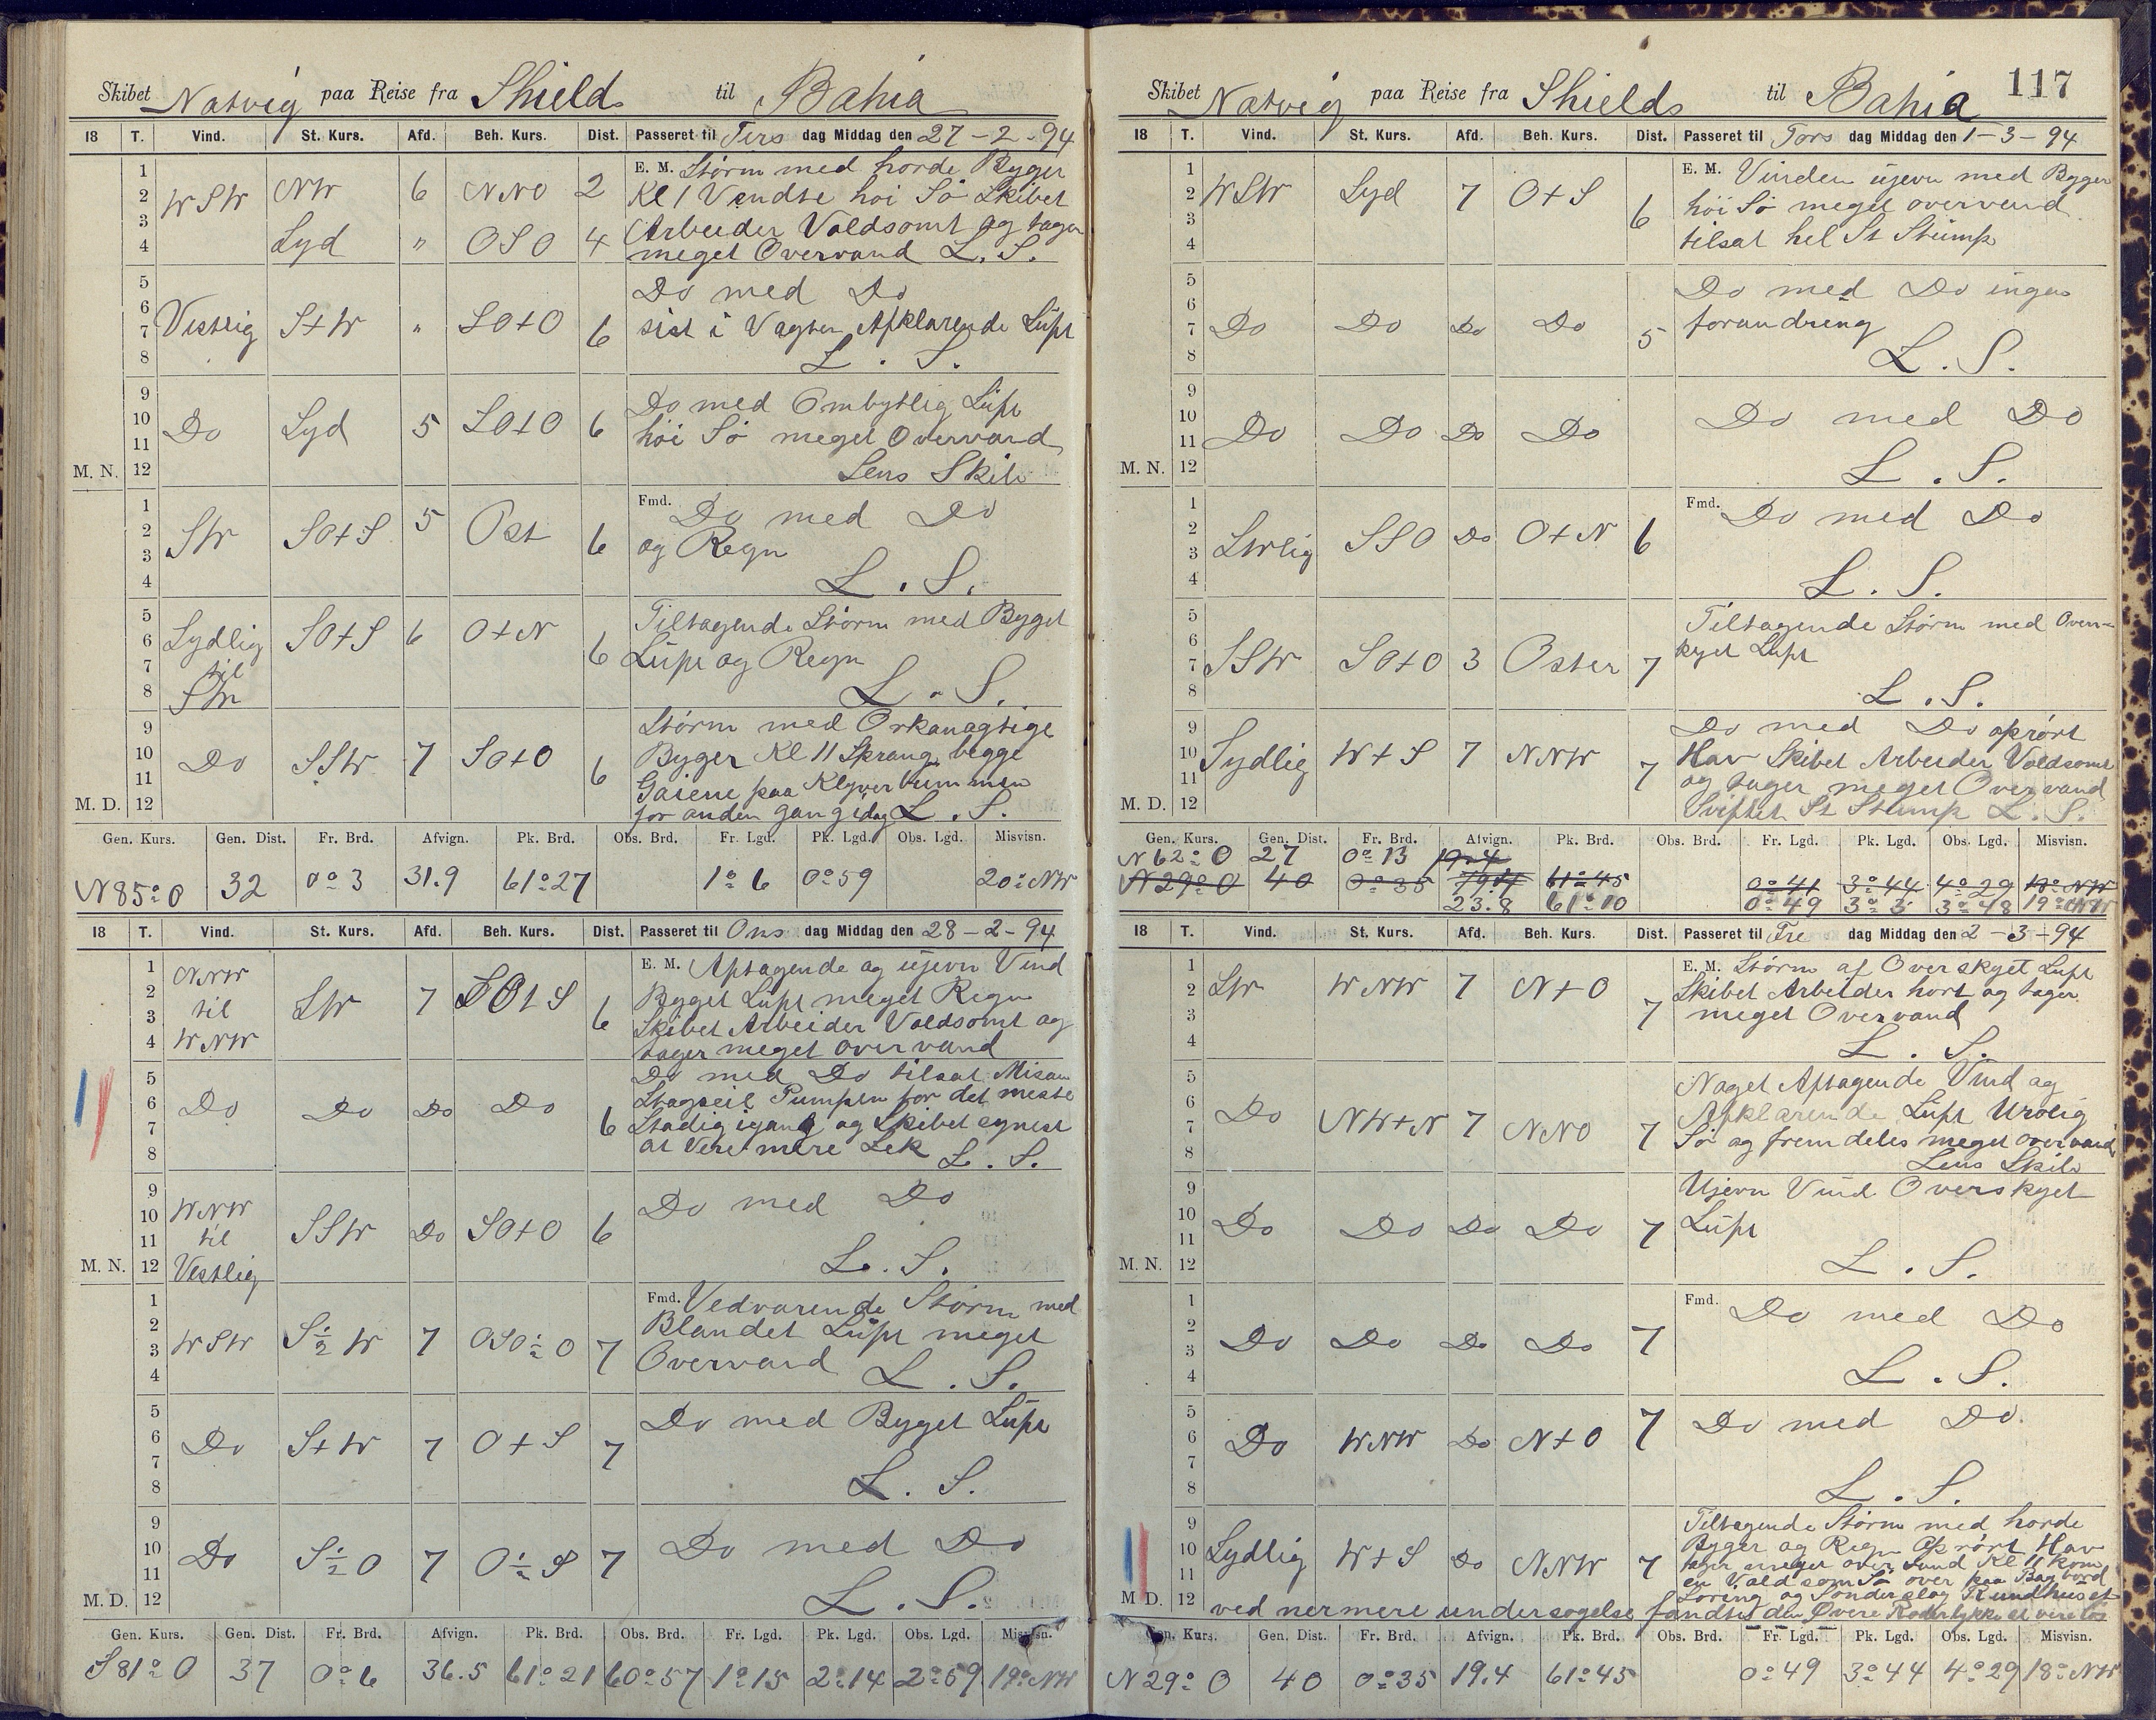 Skibet Natvig paa Reise fra Shields til Bahia
18 T. Vind. St. Kurs. Afd. Beh. Kurs. Dist. Passeret til Tirs dag Middag den 27-2-94
1 2 3 4
WSW NW 6 NNO 2
Syd " OSO 4
E. M. Störm med horde Byger
Kl 1 Vendte hoi Sö Skibet
Arbeider Voldsomt og tager
meget Overvand L. S.
5 6 7 8
Vestlig S+W " SO+O 6
Do med Do
sist i Vagten Afklarende Lüft
L. S.
9 10 11 M. N. 12
Do Syd 5 SO+O 6
Do med Ombytlig Lüft
höi Sö meget Overvand
Lens Skib
1 2 3 4
SW SO+S 5 Ost 6
Fmd. Do med Do
og Regn
L. S.
5 6 7 8
Sydlig til SW SO+S 6 O+N 6
Tiltagende Störm med Byget
Lüft og Regn
L. S.
9 10 11 M. D. 12
Do SSW 7 SO+O 6
Störm med Orkanagtige
Byger Kl 11 Sprang begge
Gaiene paa Klyverbummen
for anden gang idag L. S.
Gen. Kurs. Gen. Dist. Fr. Brd. Afvign. Pk. Brd. Obs. Brd. Fr. Lgd. Pk. Lgd. Obs. Lgd. Misvisn.
N 85° O 32 0° 3 31.9 61° 27 1° 6 0° 59 20° NW
18 T. Vind. St. Kurs. Afd. Beh. Kurs. Dist. Passeret til Ons dag Middag den 28-2-94
1 2 3 4
NNW til WNW SW 7 SO+S 6
E. M. Aftagende og üjevn Vind
Byget Lüft meget Regn
Skibet Arbeider Voldsomt og
tager meget overvand
5 6 7 8
Do Do Do Do 6
Do med Do tilsat Misan
Stagseil Pumpen for det meste
Stadig igang og Skibet synest
at Vere mere Lek L. S.
9 10 11 M. N. 12
WNW til Vestlig SSW Do SO+O 6
Do med Do
L. S.
1 2 3 4
WSW S½W 7 OSO½O 7
Fmd. Vedvarende Störm med
Blandet Lüft meget
Overvand L. S.
5 6 7 8
Do S+W 7 O+S 7
Do med Byget Lüft
L. S.
9 10 11 M. D. 12
Do S½O 7 O½S 7
Do med Do
L. S.
Gen. Kurs. Gen. Dist. Fr. Brd. Afvign. Pk. Brd. Obs. Brd. Fr. Lgd. Pk. Lgd. Obs. Lgd. Misvisn.
S 81° O 37 0° 6 36.5 61° 21 60° 57 1° 15 2° 14 2° 59 19° NW
117
Skibet Natvig paa Reise fra Shields til Bahia
18 T. Vind. St. Kurs. Afd. Beh. Kurs. Dist. Passeret til Tors dag Middag den 1-3-94
1 2 3 4
WSW Syd 7 O+S 6
E. M. Vinden üjevn med Byger
höi Sö meget overvand
tilsat hel St Stümp
5 6 7 8
Do Do Do Do 5
Do med Do ingen
forandring
L. S.
9 10 11 M. N. 12
Do Do Do Do
Do med Do
L. S.
1 2 3 4
SWlig SSO Do O+N 6
Fmd. Do med Do
L. S.
5 6 7 8
SSW SO+O 3 Oster 7
Tiltagende Störm med Overs-
kyet Lüft
L. S.
9 10 11 M. D. 12
Sydlig W+S 7 NNW 7
Do med Do oprört
Hav Skibet Arbeider Voldsomt
og tager meget Overvand
Sviftet St Stump L. S.
Gen. Kurs. Gen. Dist. Fr. Brd. Afvign. Pk. Brd. Obs. Brd. Fr. Lgd. Pk. Lgd. Obs. Lgd. Misvisn.
N 62° O 27 0° 13 19.4
N 29° O 40 0° 35 19.4 61° 45 0° 41 3° 44 4° 29 18° NW
23.8 61° 10 0° 49 3° 3 3° 48 19° NW
18 T. Vind. St. Kurs. Afd. Beh. Kurs. Dist. Passeret til Fre dag Middag den 2-3-94
1 2 3 4
SW WNW 7 N+O 7
E. M. Störm af Overskyet Lüft
Skibet Arbeider hort og tager
meget Overvand
L. S.
5 6 7 8
Do NW+N 7 NNO 7
Noget Aftagende Vind og
Afklarende Lüft Urolig
Sö og fremdeles meget overvand
Lens Skib
9 10 11 M. N. 12
Do Do Do Do 7
Ujevn Vind Overskyet
Lüft
L. S.
1 2 3 4
Do Do Do Do 7
Fmd. Do med Do
L. S.
5 6 7 8
Do WNW Do N+O 7
Do med Do.
L. S.
9 10 11 M. D. 12
Sydlig W+S Do NNW 7
Tiltagende Störm med horde
Byger og Regn Oprört Hav
tager meget over vand Kl 11 kom
en Voldsom Sö over paa Bagbord
Loring og Sonderslog Rundhuset
ved nermere undersogelse fandtes den Övere Roderlykke at vere lös
Gen. Kurs. Gen. Dist. Fr. Brd. Afvign. Pk. Brd. Obs. Brd. Fr. Lgd. Pk. Lgd. Obs. Lgd. Misvisn.
N 29° O 40 0° 35 19.4 61° 45 0° 49 3° 44 4° 29 18° NW